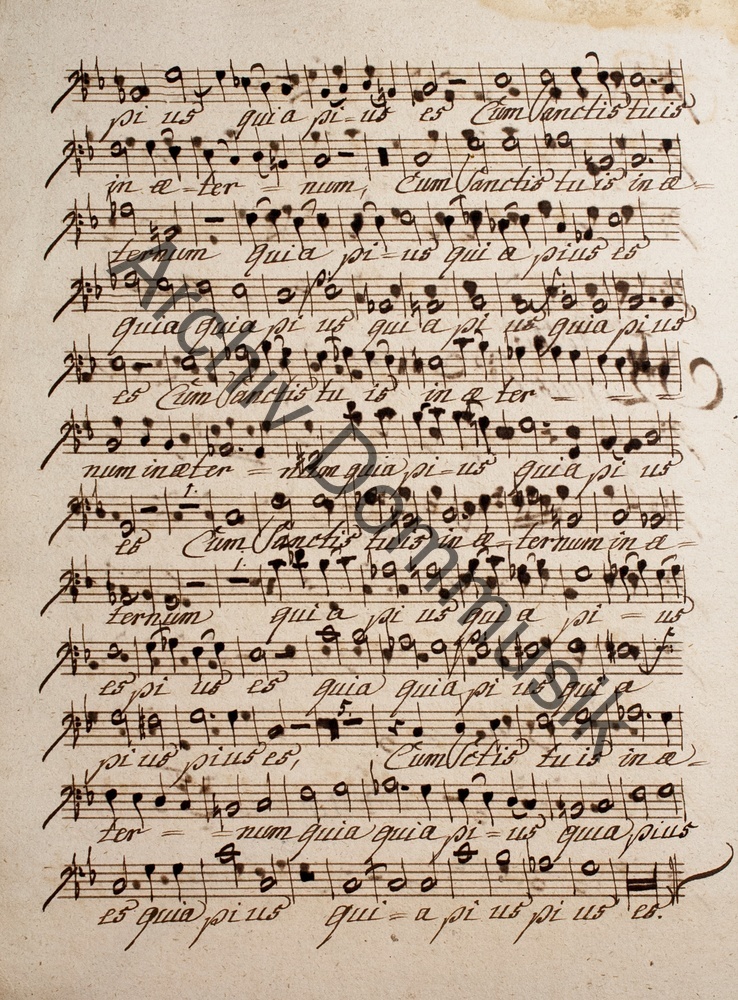 pi us quia pi = us es Cum Sanctis tuis
in æ - ter = num, Cum Sanctis tuis in æ =
ternum quia pi = us qui a pius es
quia quia pi us qui a pi us quia pius
es Cum Sanctis tu is in æ ter = = =
num in æter = num quia pi = us quia pi us
es Cum Sanctis tuis in æ = ternum in æ =
ternum qui a pi us qui a pi = us
es pi us es quia quia pi us qui a
pi us pius es, 5 Cum Sctis tuis in æ =
ter = = num quia quia pi = us quia pius
es quia pi us qui = a pi us pi us es.
Archiv Dommusik